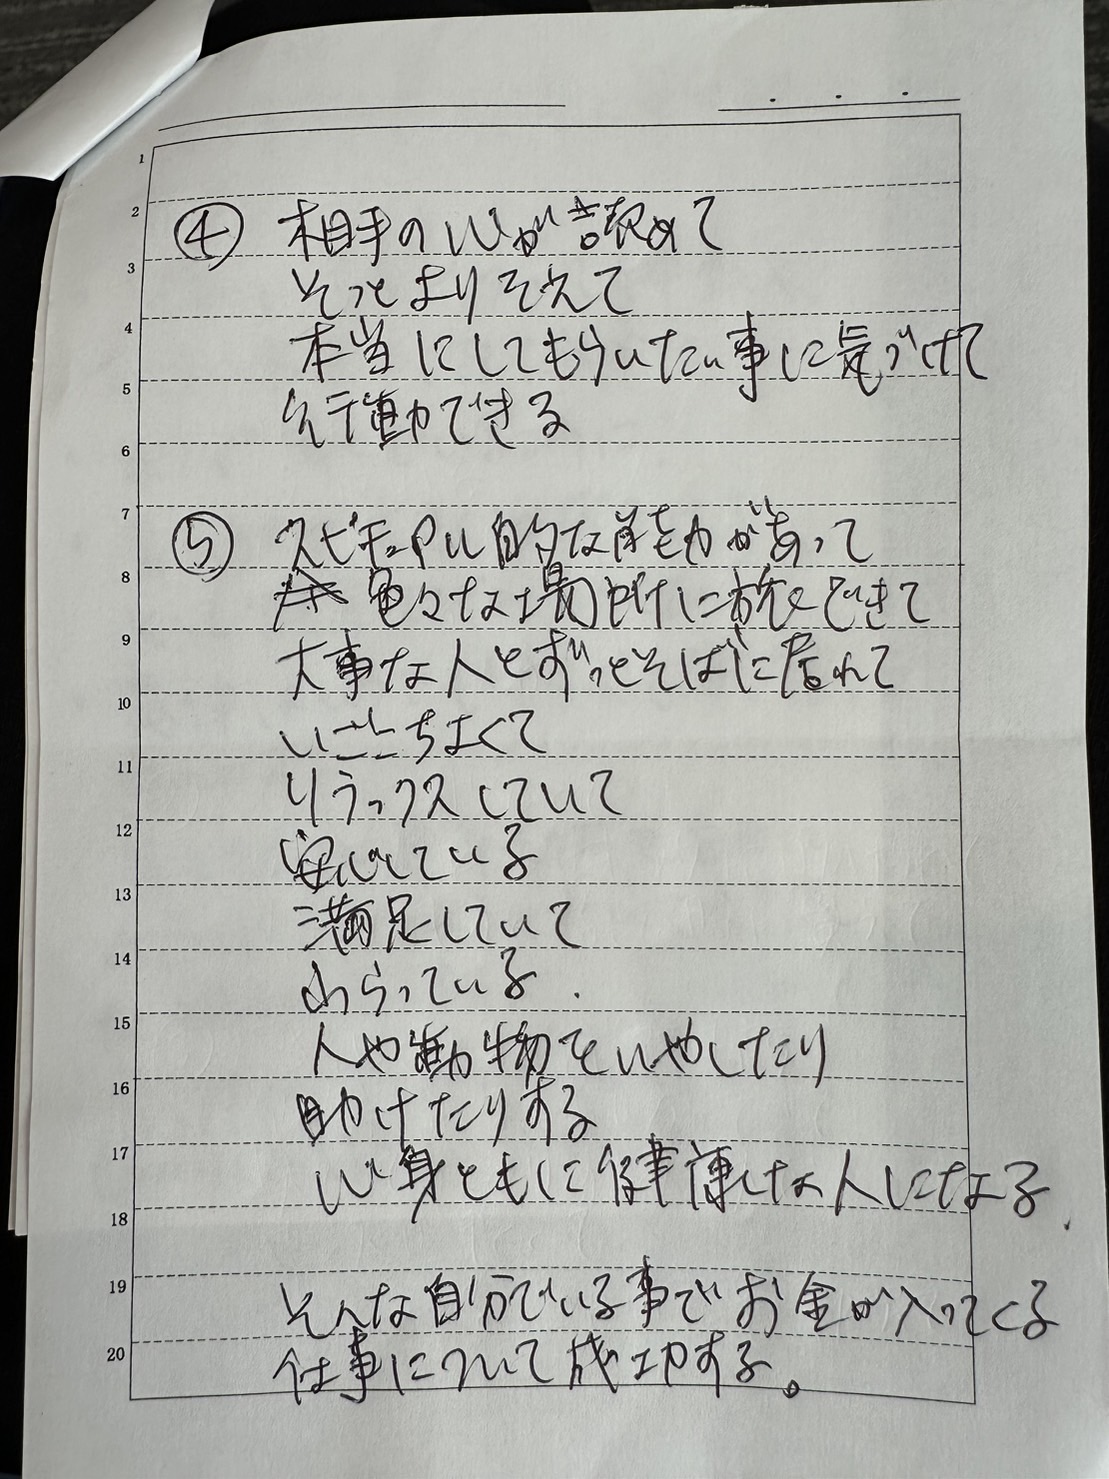 1
2
④ 相手の心が読めて
3
そっとよりそえて
4
本当にしてもらいたい事に気づけて
5
行動できる
6
7
⑤ スピチュアル的な能力があって
8
色々な場所に旅できて
9
大事な人とずっとそばに居れて
10
いごこちよくて
11
リラックスしていて
12
安心している
13
満足していて
14
わらっている.
15
人や動物をいやしたり
16
助けたりする
17
心身ともに健康な人になる.
18
19
そんな自分でいる事でお金が入ってくる
20
仕事について成功する。